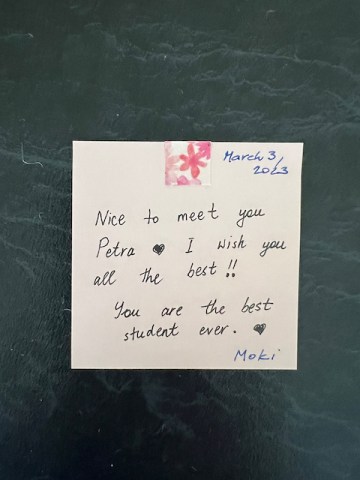 March 3,
2023
Nice to meet you
Petra ♥ I wish you
all the best !!
You are the best
student ever. ♥
Moki